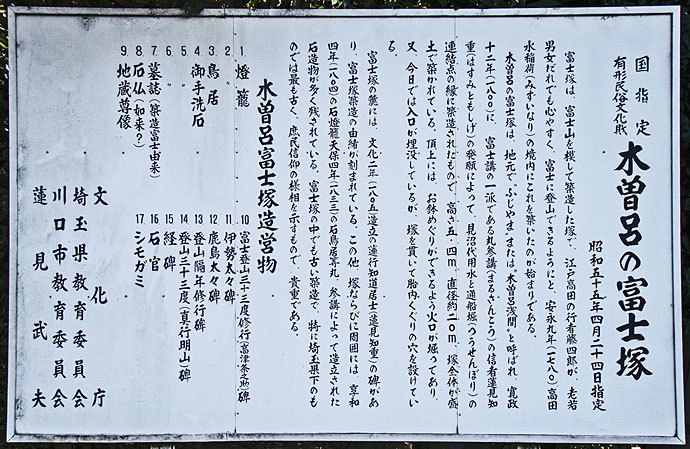 国指定
有形民俗文化財
木曽呂の富士塚
昭和五十五年四月二十四日指定
富士塚は、富士山を模して築造した塚で、江戸高田の行者藤四郎が、老若
男女だれでも心やすく、富士に登山できるようにと、安永九年(一七八〇)高田
水稲荷(みずいなり)の境内にこれを築いたのが始まりである。
木曽呂の富士塚は、地元で〝ふじやま〟または〝木曽呂浅間〟と呼ばれ、寛政
十二年(一八〇〇)に、富士講の一派である丸参講(まるさんとう)の信者蓮見知
重(はすみともしげ)の発願によって、見沼代用水と通船堀(つうせんぼり)の
連結点の縁に築造されたもので、高さ五・四m、直径約二〇m、塚全体が盛
土で築かれている。頂上には、お鉢めぐりができるよう火口が掘ってあり、
又、今日では入口が埋没しているが、塚を貫いて胎内くぐりの穴を設けてい
る。
富士塚の麓には、文化二年(一八〇五)造立の蓮行知道居士(蓮見知重)の碑があ
り、富士塚築造の由緒が刻まれている。この他、塚ならびに周囲には、享和
四年(一八〇四)の石燈籠、天保四年(一八三三)の石鳥居等丸参講によって造立された
石造物が多く残されている。富士塚の中でも古い築造で、特に埼玉県下のも
のでは最も古く、庶民信仰の様相を示すもので、貴重である。
木曽呂富士塚造営物
1 燈籠
2 〃
3 鳥居
4 御手洗石
5 〃
6 〃
7 墓誌(築造富士由来)
8 石仏(如来?)
9 地蔵尊像
10 富士登山三十三度修行(富津粂之助)碑
11 伊勢太々碑
12 鹿島太々碑
13 登山隔年修行碑
14 登山三十三度(真行明山)碑
15 経碑
16 石宮
17 シモガミ
文化庁
埼玉県教育委員会
川口市教育委員会
蓮見武夫